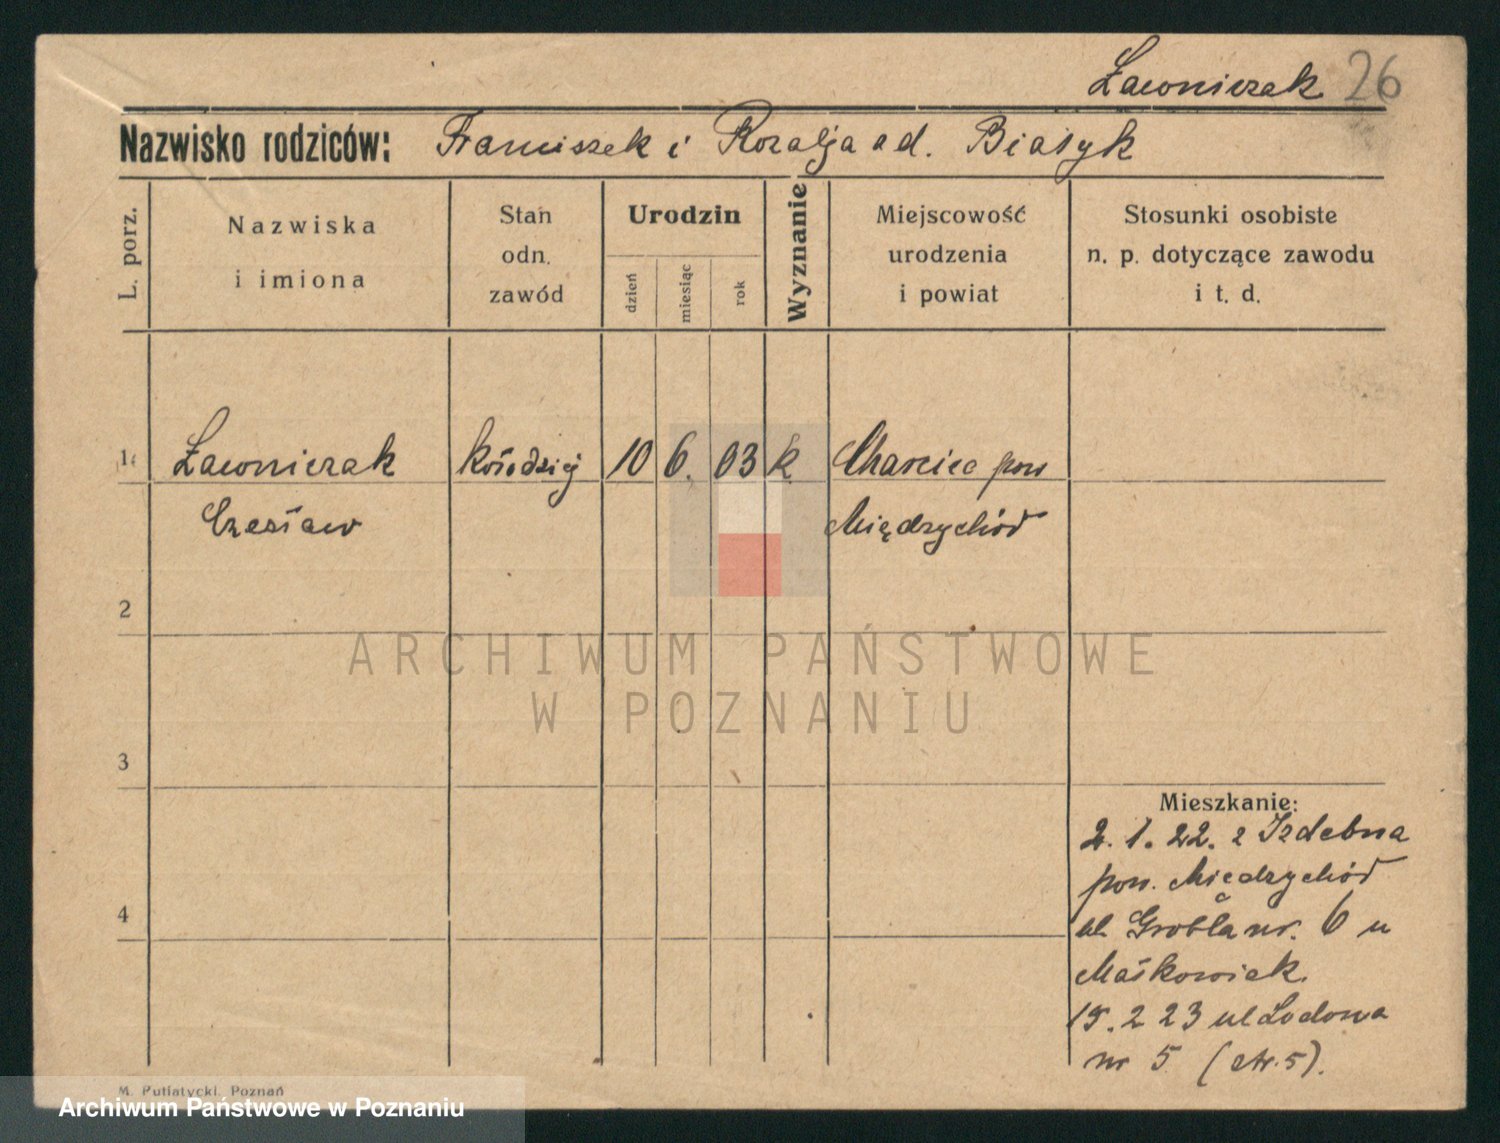 Ławniczak 26
Nazwisko rodziców: Franciszek i Rozalja od. Białyk
L. porz.
Nazwiska
i imiona
Stan
odn.
zawód
Urodzin
dzień
miesiąc
rok
Wyznanie
Miejscowość
urodzenia
i powiat
Stosunki osobiste
n. p. dotyczące zawodu
i t. d.
1 Ławniczak kołodziej 10 6. 03 k Charcice pow
Czesław Międzychód
2
3
4
Mieszkanie:
2. 1. 22. z Izdebna
pow. Międzychód
ul. Grobla nr. 6 u
Maćkowiak.
15. 2 23 ul Lodowa
nr 5 (str. 5).
M. Putiatycki, Poznań
ARCHIWUM PAŃSTWOWE
W POZNANIU
Archiwum Państwowe w Poznaniu